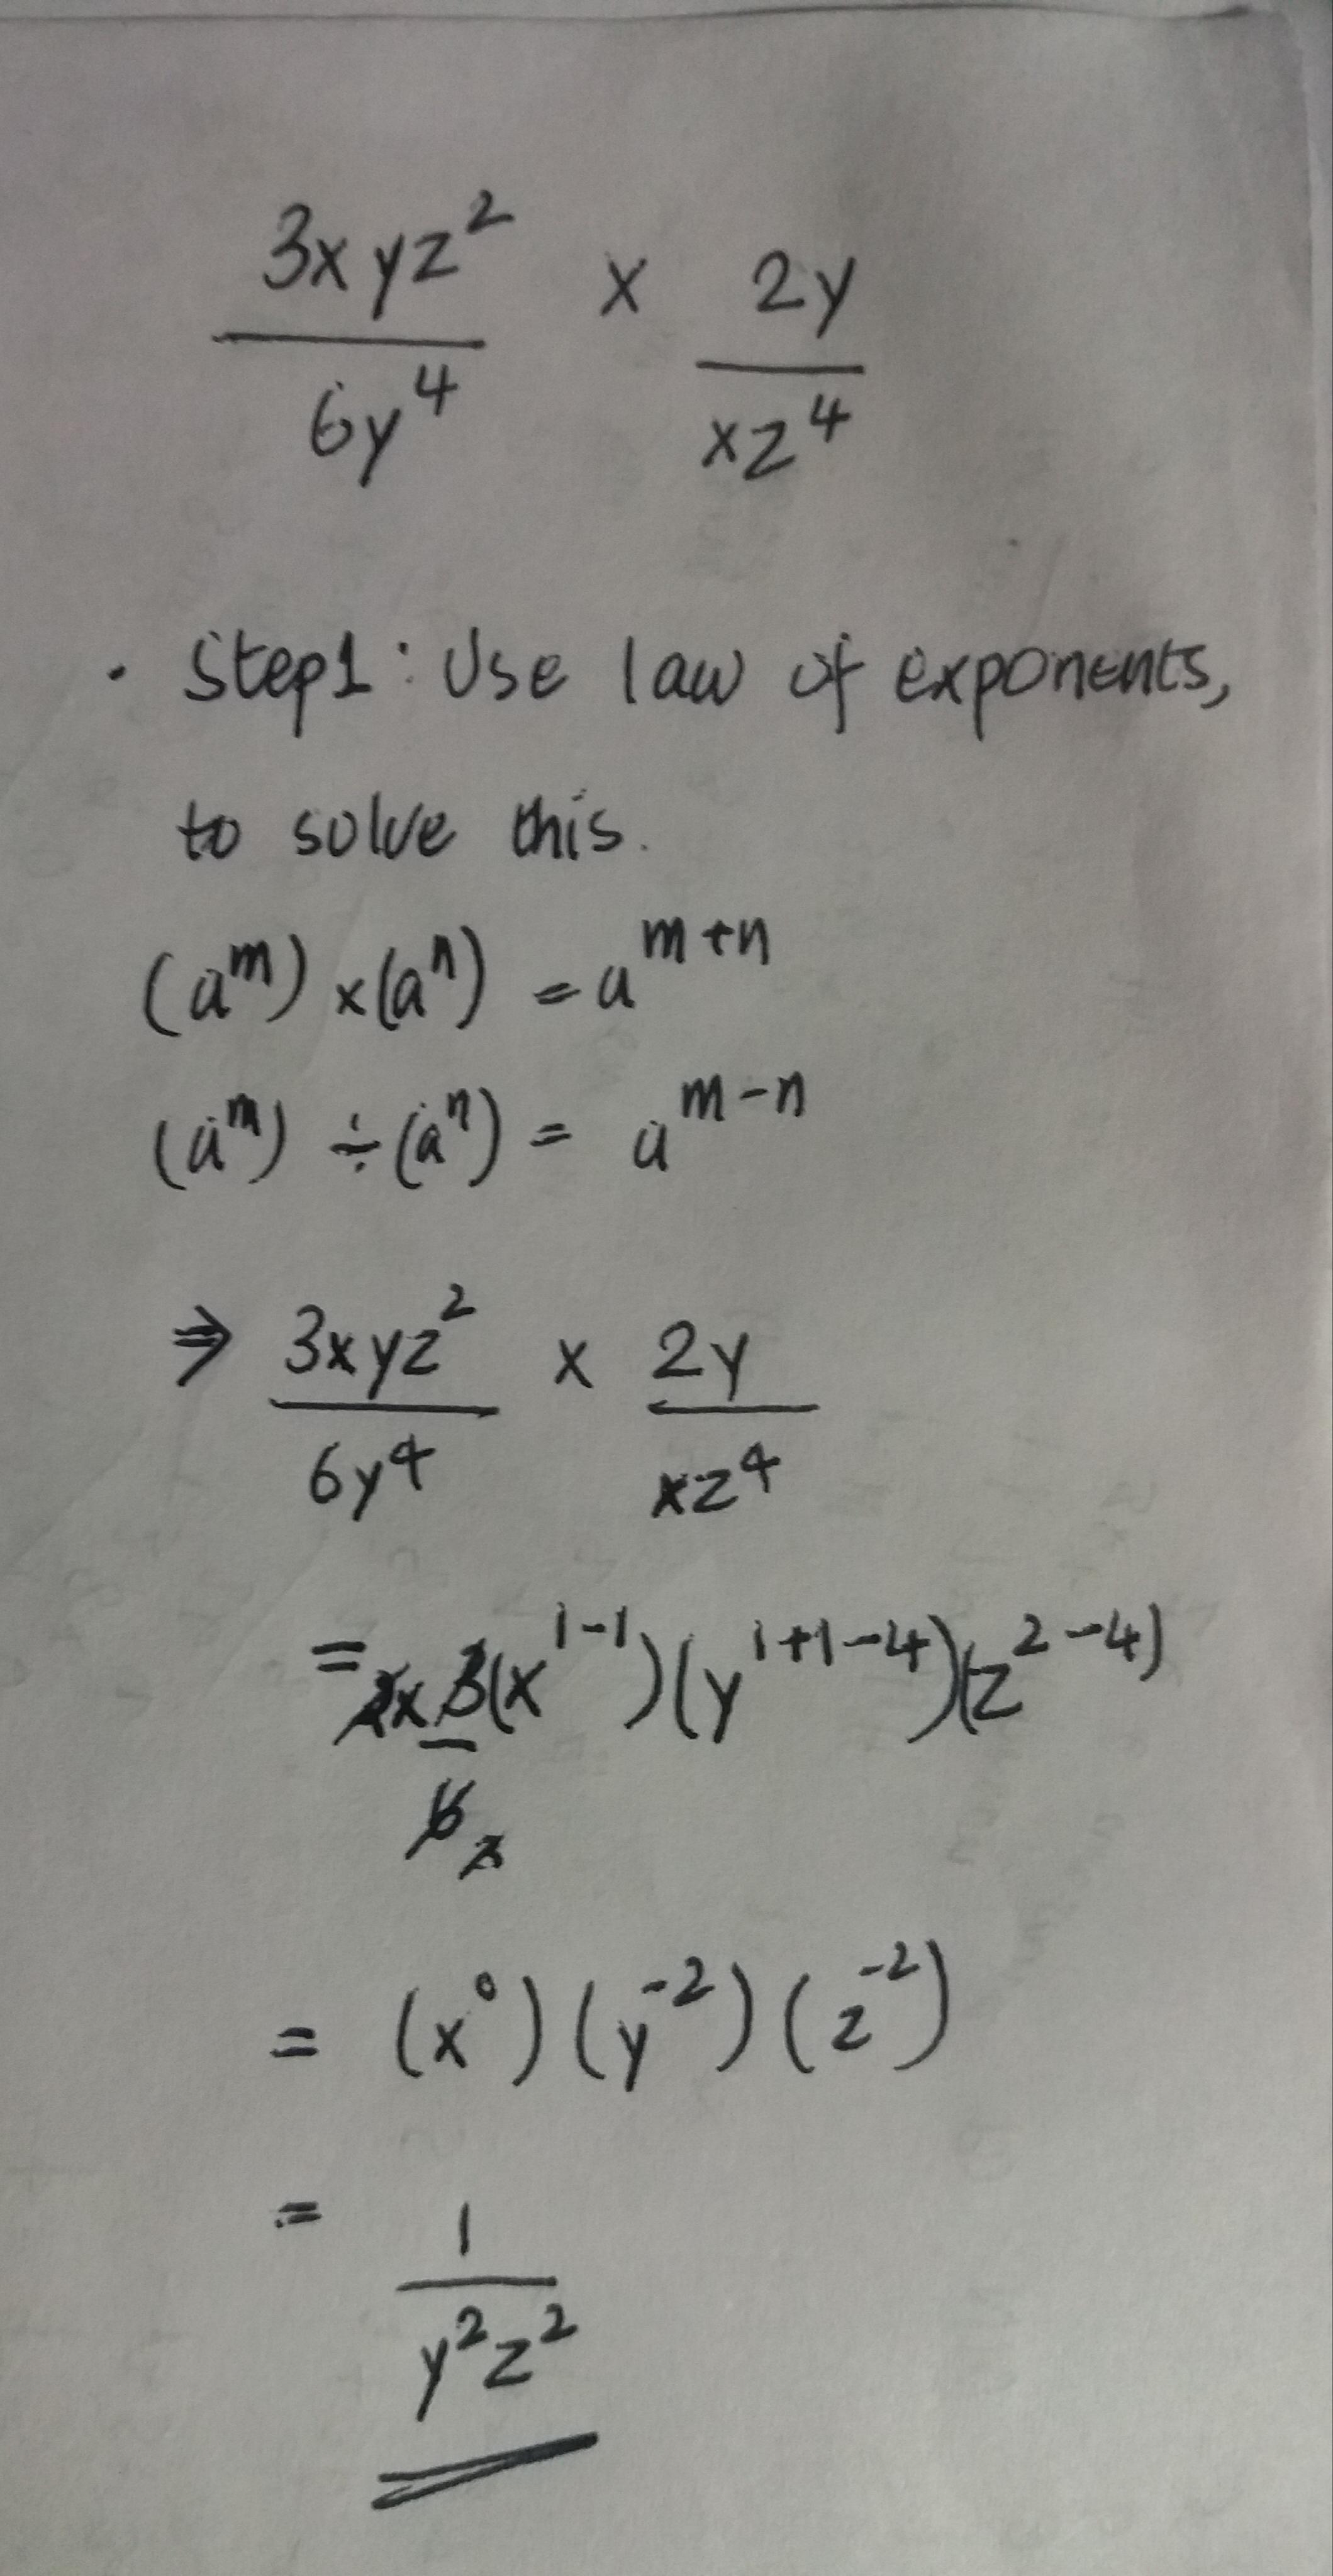 3xyz² × 2y
6y⁴ xz⁴
· Step1: Use law of exponents,
to solve this.
(aᵐ) × (aⁿ) = aᵐ⁺ⁿ
(aᵐ) ÷ (aⁿ) = aᵐ⁻ⁿ
⇒ 3xyz² × 2y
6y⁴ xz⁴
= 2× 3(x¹⁻¹)(y¹⁺¹⁻⁴)(z²⁻⁴)
6 2
= (x⁰)(y⁻²)(z⁻²)
= 1
y²z²